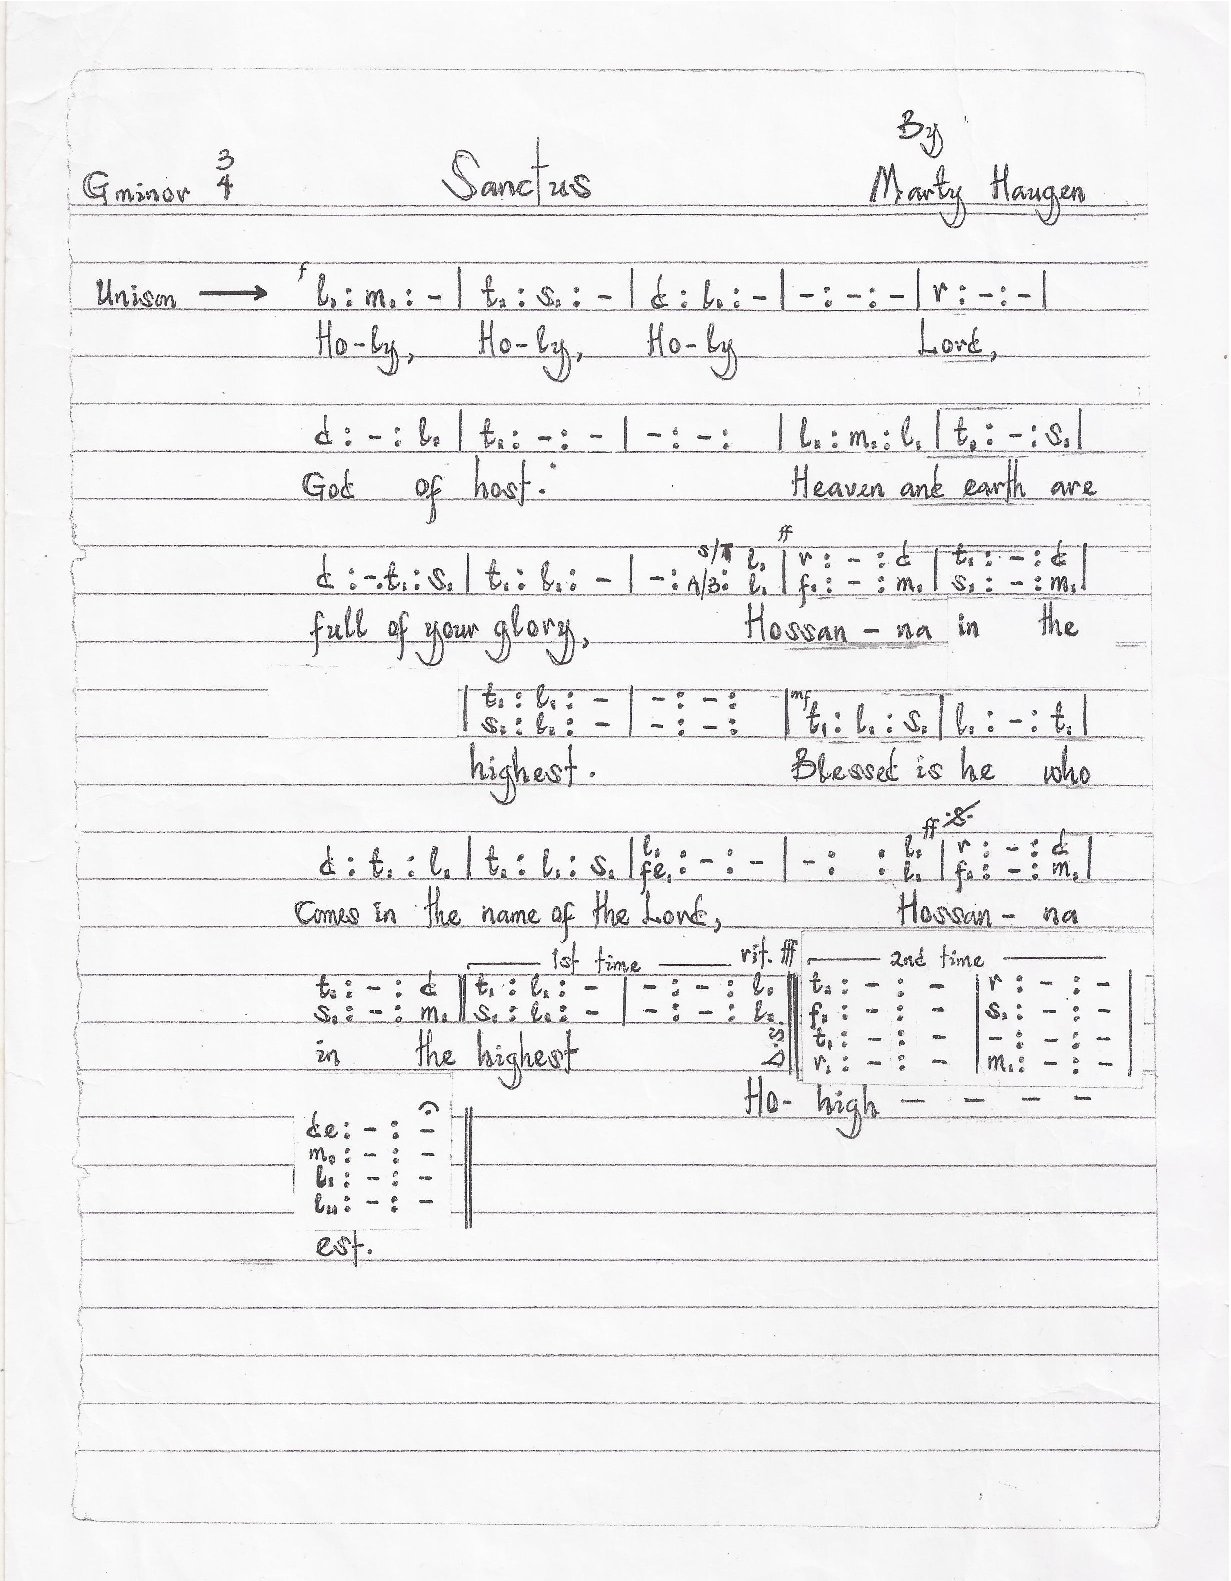 By
G minor 3/4 Sanctus Marty Haugen
Unison → f l₁ : m₁ : - | t₁ : s₁ : - | d : l₁ : - | - : - : - | r : - : - |
Ho-ly, Ho-ly, Ho-ly Lord,
d : - : l₁ | t₁ : - : - | - : - : | l₁ : m₁ : l₁ | t₁ : - : s₁ |
God of host. Heaven and earth are
S/T l₁ | ff r : - : d | t₁ : - : d |
d : -.t₁ : s₁ | t₁ : l₁ : - | - : A/B : l₁ | f₁ : - : m₁ | s₁ : - : m₁ |
full of your glory, Hossan - na in the
| t₁ : l₁ : - | - : - : | mf t₁ : l₁ : s₁ | l₁ : - : t₁ |
| s₁ : l₁ : - | - : - : |
highest. Blessed is he who
ff 𝄋
d : t₁ : l₁ | t₁ : l₁ : s₁ | l₁ : - : - | - : : l₁ | r : - : d |
fe₁ l₁ | f₁ : - : m₁ |
Comes in the name of the Lord, Hossan - na
1st time rit. fff 2nd time
t₁ : - : d || t₁ : l₁ : - | - : - : l₁ || t₁ : - : - | r : - : - |
s₁ : - : m₁ || s₁ : l₁ : - | - : - : l₁ || f₁ : - : - | s₁ : - : - |
D.S t₁ : - : - | - : - : - |
r₁ : - : - | m₁ : - : - |
in the highest
Ho- high - - - -
de : - : -
m₁ : - : -
l₁ : - : -
l₁₁ : - : -
est.